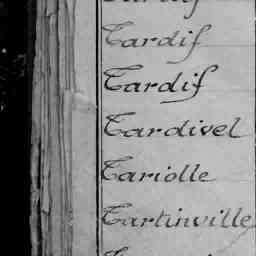 Tardif
Tardif
Tardivel
Tariolle
Tartinville